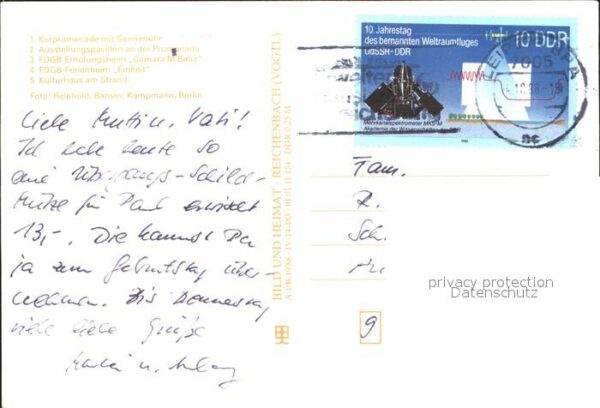 1 Kurpromenade mit Sonnenuhr
2 Ausstellungspavillon an der Promenade
3 FDGB-Erholungsheim
4 FDGB-Ferienheim „Einheit"
5 Kulturhaus am Strand
Foto: Reinhold, Bansin; Kampmann, Berlin
Liebe Mutti u. Vati!
Ich habe heute so
eine Übergangs-Schild-
Mütze für Paul erwischt
13,-. Die kannst Du
ja zum Geburtstag über-
nehmen. Bis Donnerstag
viele liebe Grüße
u.
BILD UND HEIMAT REICHENBACH (VOGTL)
A 1/B
10. Jahrestag
des bemannten Weltraumfluges
UdSSR-DDR
10 DDR
Mehrkanalspektrometer MKS-M
Akademie der Wissenschaften der DDR
7005
Fam.
R.
Sch.
9
privacy protection
Datenschutz